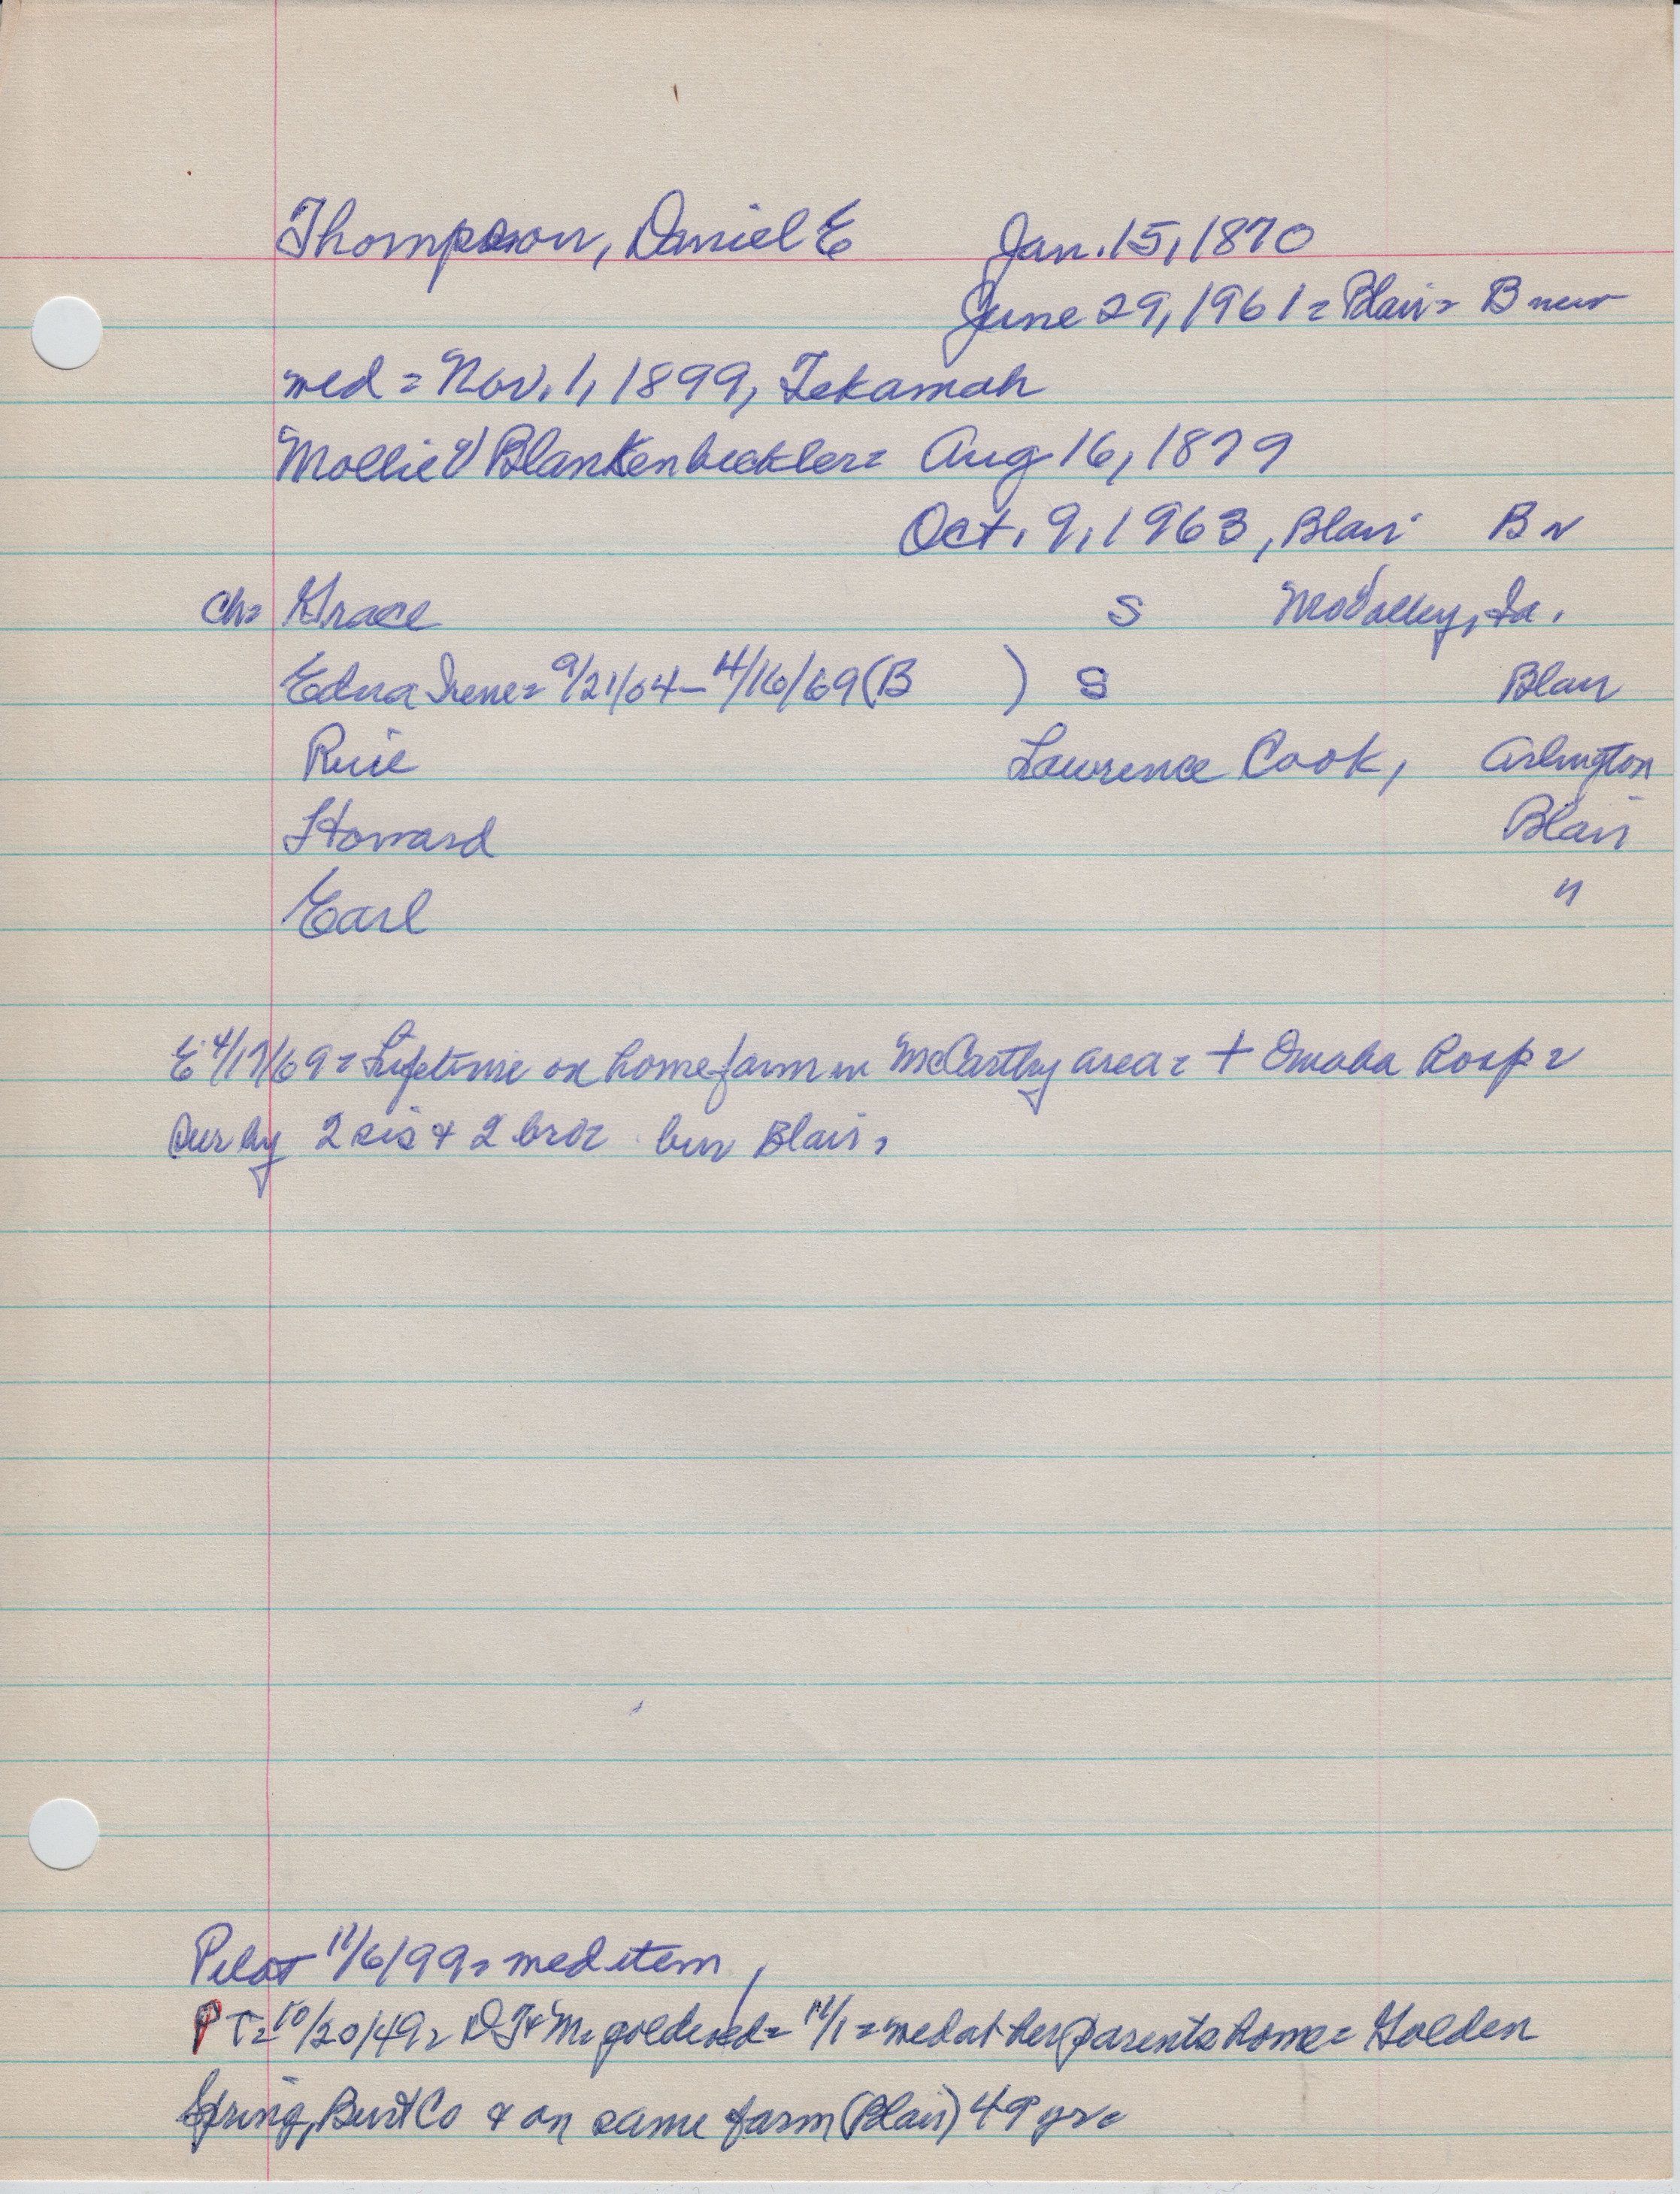 Thompson, Daniel E Jan. 15, 1870
June 29, 1961 = Blair = B new
wed = Nov. 1, 1899, Tekamah
Mollie V Blankenbeckler = Aug 16, 1879
Oct. 9, 1963, Blair B N
ch = Grace S Mo Valley, Ia.
Edna Irene = 9/21/04 - 4/16/69 (B ) S Blair
Rúie Lawrence Cook, Arlington
Howard Blair
Earl "
E 4/17/69 = Lifetime on home farm in McCarthy area = + Omaha Hosp =
Sur by 2 sis + 2 bro = bur Blair,
Pilot 11/6/99 = wed item
PT = 10/20/49 = D T & M = golden wed = 11/1 = wed at her parents home = Golden
Spring, Burt Co & on same farm (Blair) 49 yr =